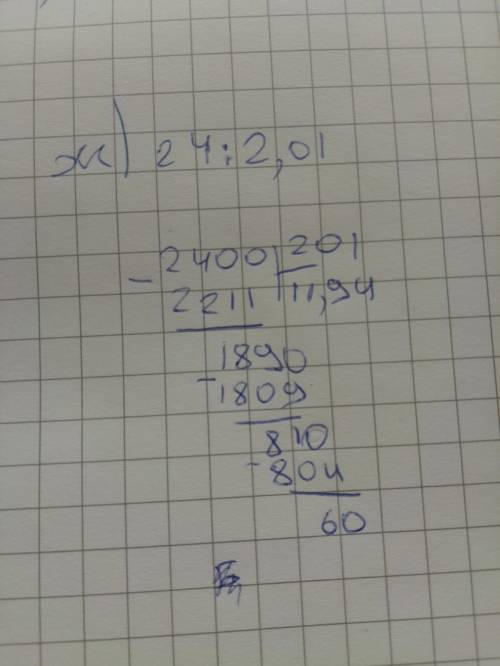 ж) 24:2,01
- 2400 | 201
2211 | 11,94
1890
- 1809
810
- 804
60